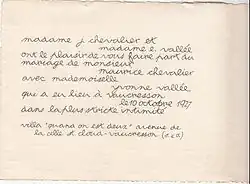 madame j. chevalier et
madame e. vallée
ont le plaisir de vous faire part du
mariage de monsieur
maurice chevalier
avec mademoiselle
yvonne vallée
qui a eu lieu à vaucresson
le 10 octobre 1927
dans la plus stricte intimité
villa "quand on est deux" avenue de
la celle st cloud - vaucresson (s.&o)